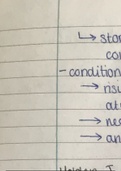 ↳ stor
con
- condition
→ risi
at
→ nee
→ an